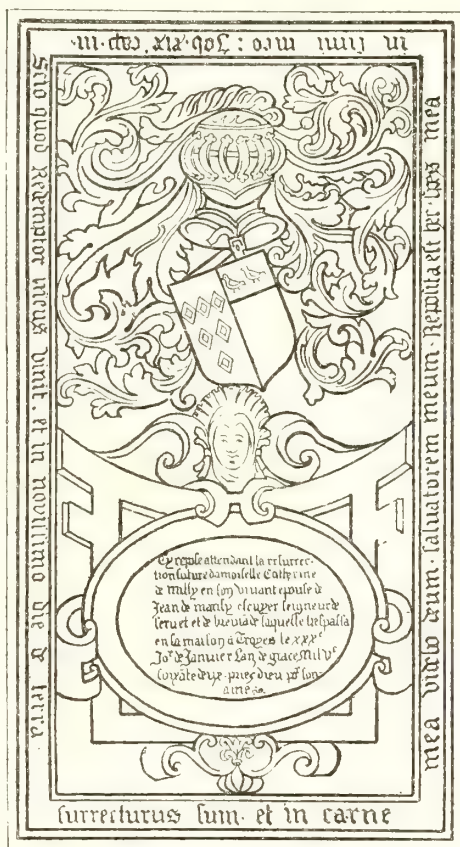 Scio quod Redemptor meus vivit. et in novissimo die de terra.
surrecturus sum. et in carne
mea videbo deum. salvatorem meum. Reposita est hec spes mea
in sinu meo: Job. xix. cap. in.
Cy repose attendant la resurrec-
tion future damoiselle Catherine
de Milly en son vivant epouse de
Jean de mausy escuyer seigneur de
servet et de de laquelle trespassa
en sa maison à Troyes le xxxᵉ
Joʳ de Janvier Lan de grace Mil Vᶜ
soixāte deux. pries dieu pʳ son
ame